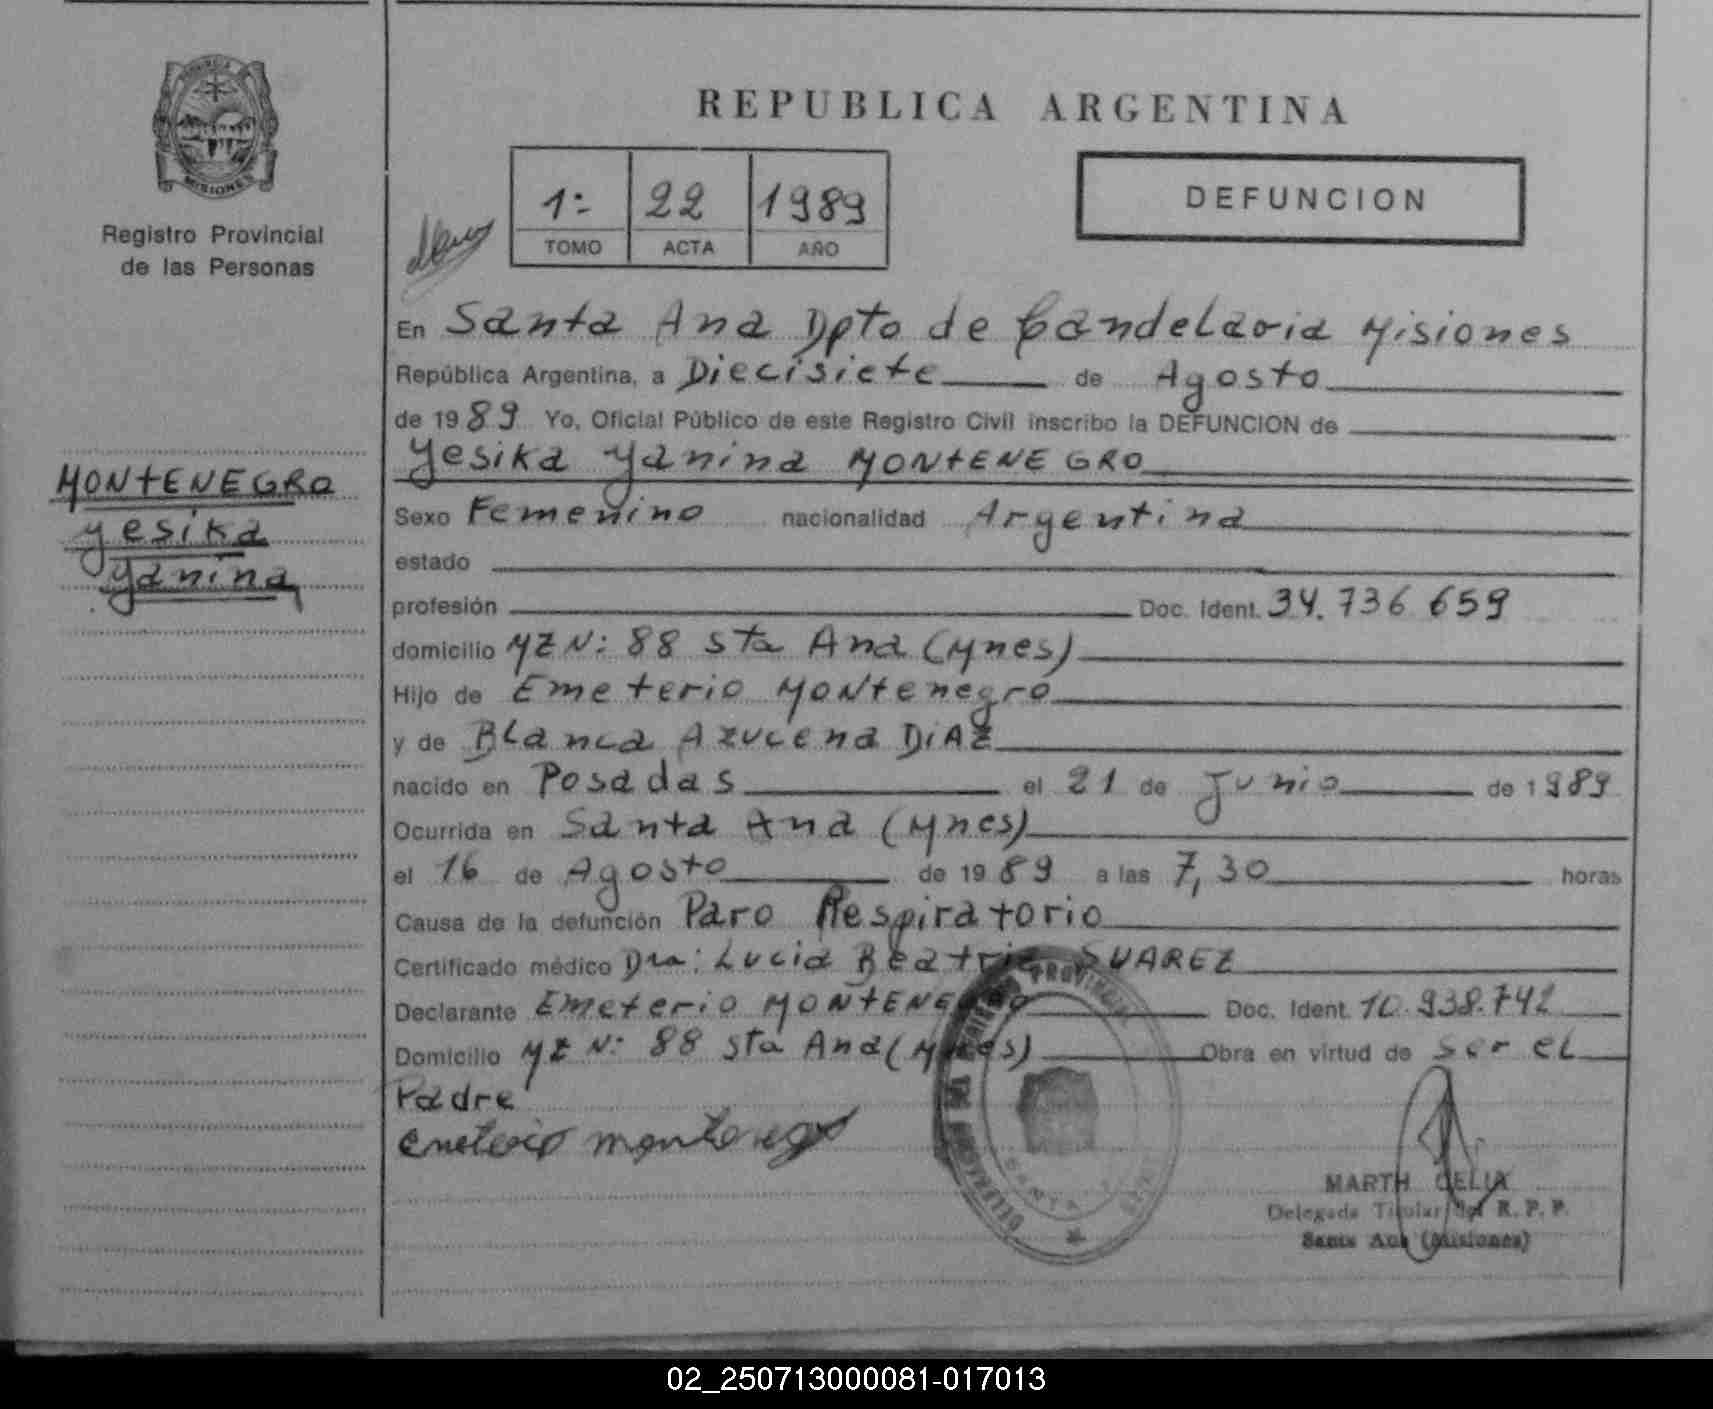 PROVINCIA DE
MISIONES
Registro Provincial
de las Personas
MONTENEGRO
Yesika
Yanina
REPUBLICA ARGENTINA
1:- 22 1989
TOMO ACTA AÑO
DEFUNCION
En Santa Ana Dpto de Candelaria Misiones
República Argentina, a Diecisiete de Agosto
de 1989 Yo, Oficial Público de este Registro Civil inscribo la DEFUNCION de
Yesika Yanina MONTENEGRO
Sexo Femenino nacionalidad Argentina
estado
profesión Doc. Ident. 34.736.659
domicilio MZ N: 88 Sta Ana (Mnes)
Hijo de Emeterio MONTENEGRO
y de Blanca Azucena DIAZ
nacido en Posadas el 21 de Junio de 1989
Ocurrida en Santa Ana (Mnes)
el 16 de Agosto de 1989 a las 7,30 horas
Causa de la defunción Paro Respiratorio
Certificado médico Dra: Lucia Beatriz SUAREZ
Declarante Emeterio MONTENEGRO Doc. Ident. 10.938.742
Domicilio MZ N: 88 Sta Ana (Mnes) Obra en virtud de ser el
Padre
Emeterio Montenegro
MARTH CELIA
Delegada Titular del R. P. P.
Santa Ana (Misiones)
02_250713000081-017013